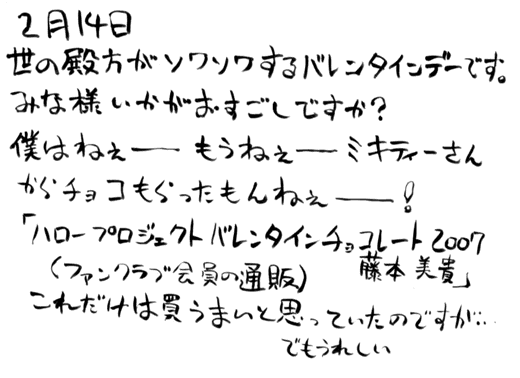 2月14日
世の殿方がソワソワするバレンタインデーです。
みな様いかがおすごしですか?
僕はねぇ── もうねぇ── ミキティーさん
からチョコもらったもんねぇ──!
「ハロープロジェクトバレンタインチョコレート2007
藤本美貴」
(ファンクラブ会員の通販)
これだけは買うまいと思っていたのですが…
でもうれしい